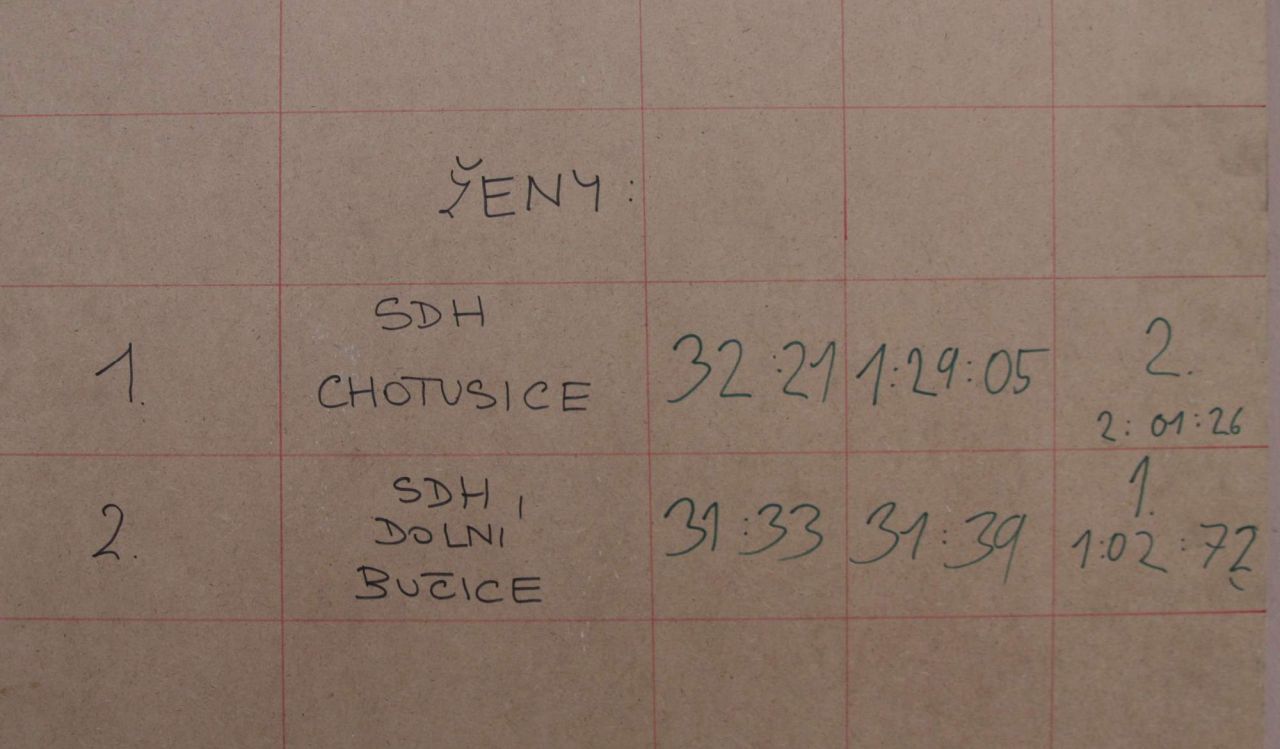 ŽENY:
1. SDH CHOTUSICE 32:21 1:29:05 2. 2:01:26
2. SDH DOLNÍ BUČICE 31:33 31:39 1. 1:02:72